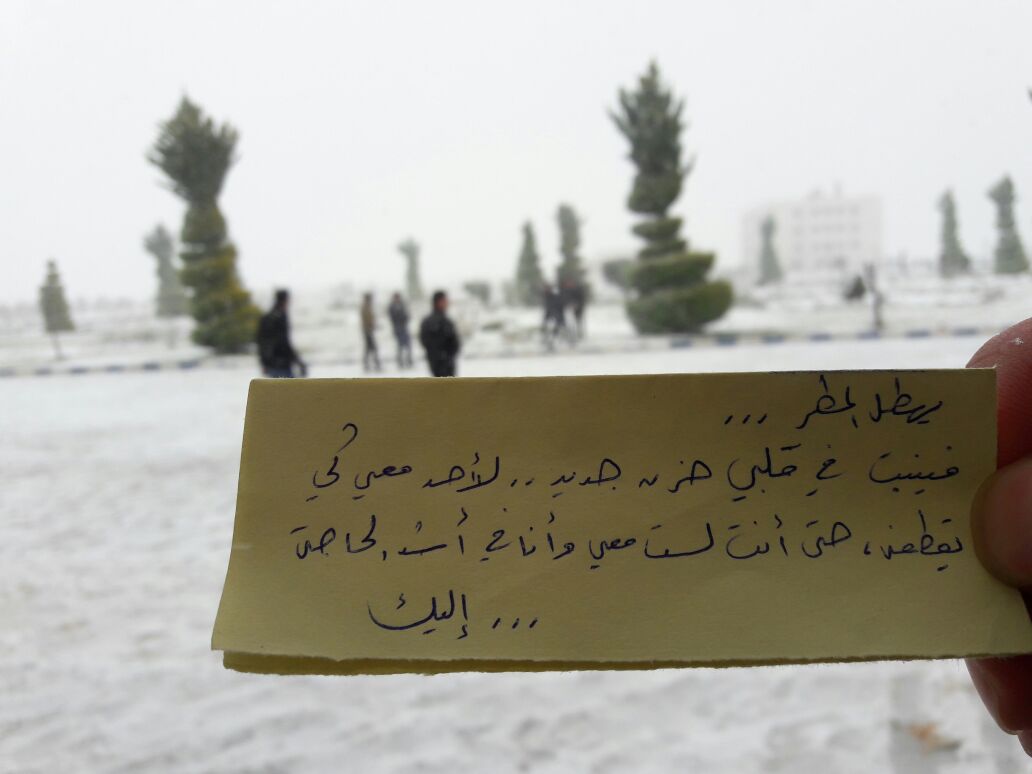 يهطل المطر ...
فينبت في قلبي حزن جديد .. لا أحد معي كي
يقطفه، حتى أنت لست معي وأنا في أشد الحاجة
... إليك